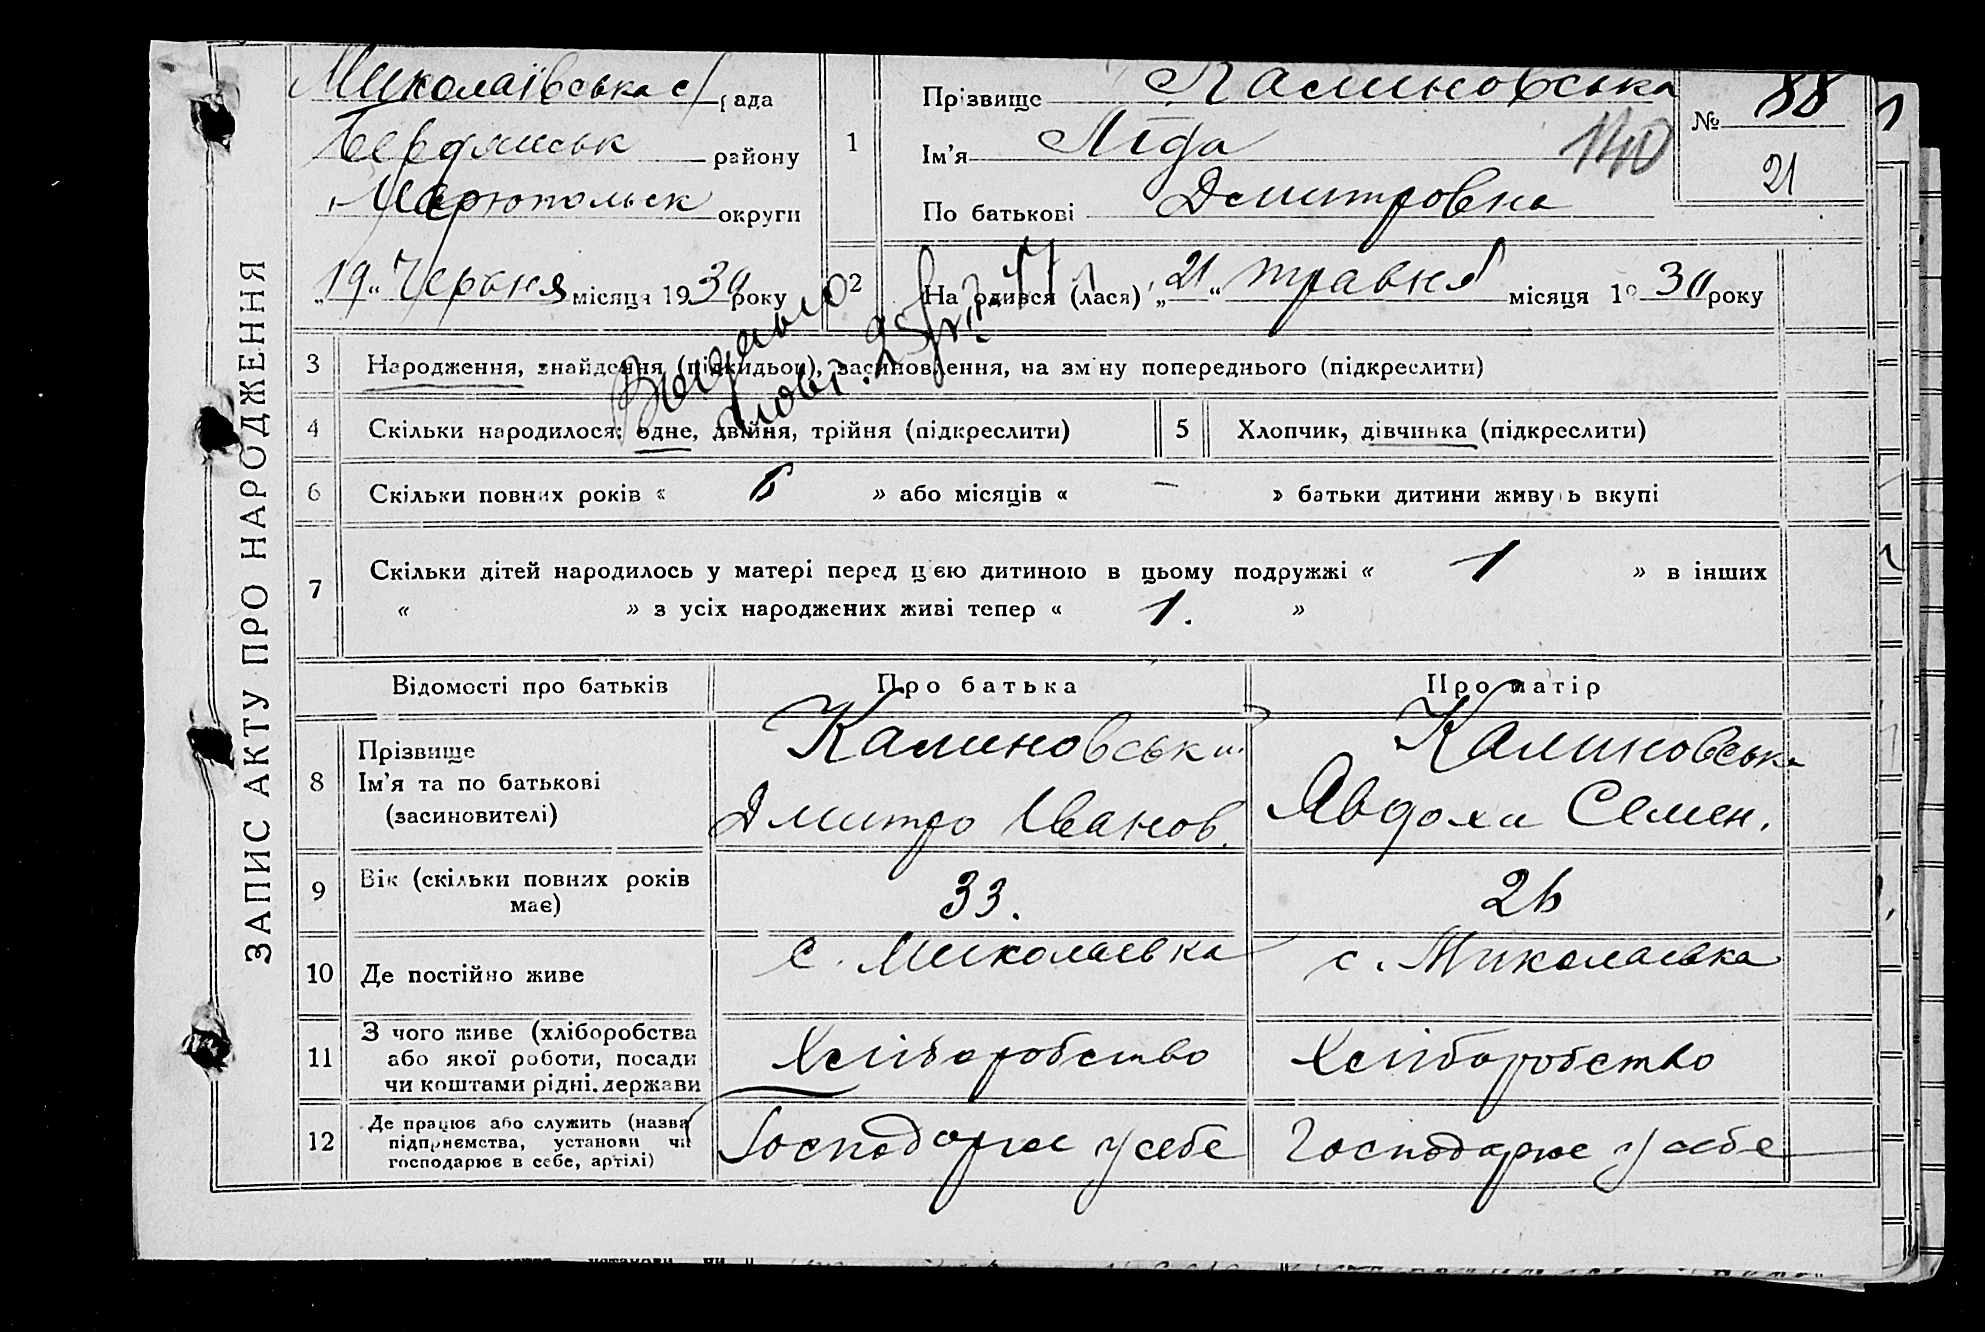 ЗАПИС АКТУ ПРО НАРОДЖЕННЯ
Миколаївська с/рада
Бердянськ району
Маріюпольськ округи
„19" Червня місяця 1930 року
1
Прізвище Калиновська
Ім'я Ліда
По батькові Дмитровна
140
№ 88
21
2 Народився (лася) „21" травня 1930 року місяця
3 Народження, знайдення (підкидьок), засиновлення, на зміну попереднього (підкреслити)
4 Скільки народилося: одне, двійня, трійня (підкреслити)
5 Хлопчик, дівчинка (підкреслити)
6 Скільки повних років « 6 » або місяців « — » батьки дитини живуть вкупі
7 Скільки дітей народилось у матері перед цією дитиною в цьому подружжі « 1 » в інших
« » з усіх народжених живі тепер « 1. »
Відомості про батьків Про батька Про матір
8 Прізвище
Ім'я та по батькові
(засиновителі)
Калиновськи
Дмитро Іванов.
Калиновська
Явдоха Семен.
9 Вік (скільки повних років має) 33. 26
10 Де постійно живе с. Миколаевка с. Миколаевка
11 З чого живе (хліборобства
або якої роботи, посади
чи коштами рідні, держави
Хліборобство Хліборобство
12 Де працює або служить (назва
підприємства, установи чи
господарює в себе, артілі)
Господарює у себе Господарює у себе